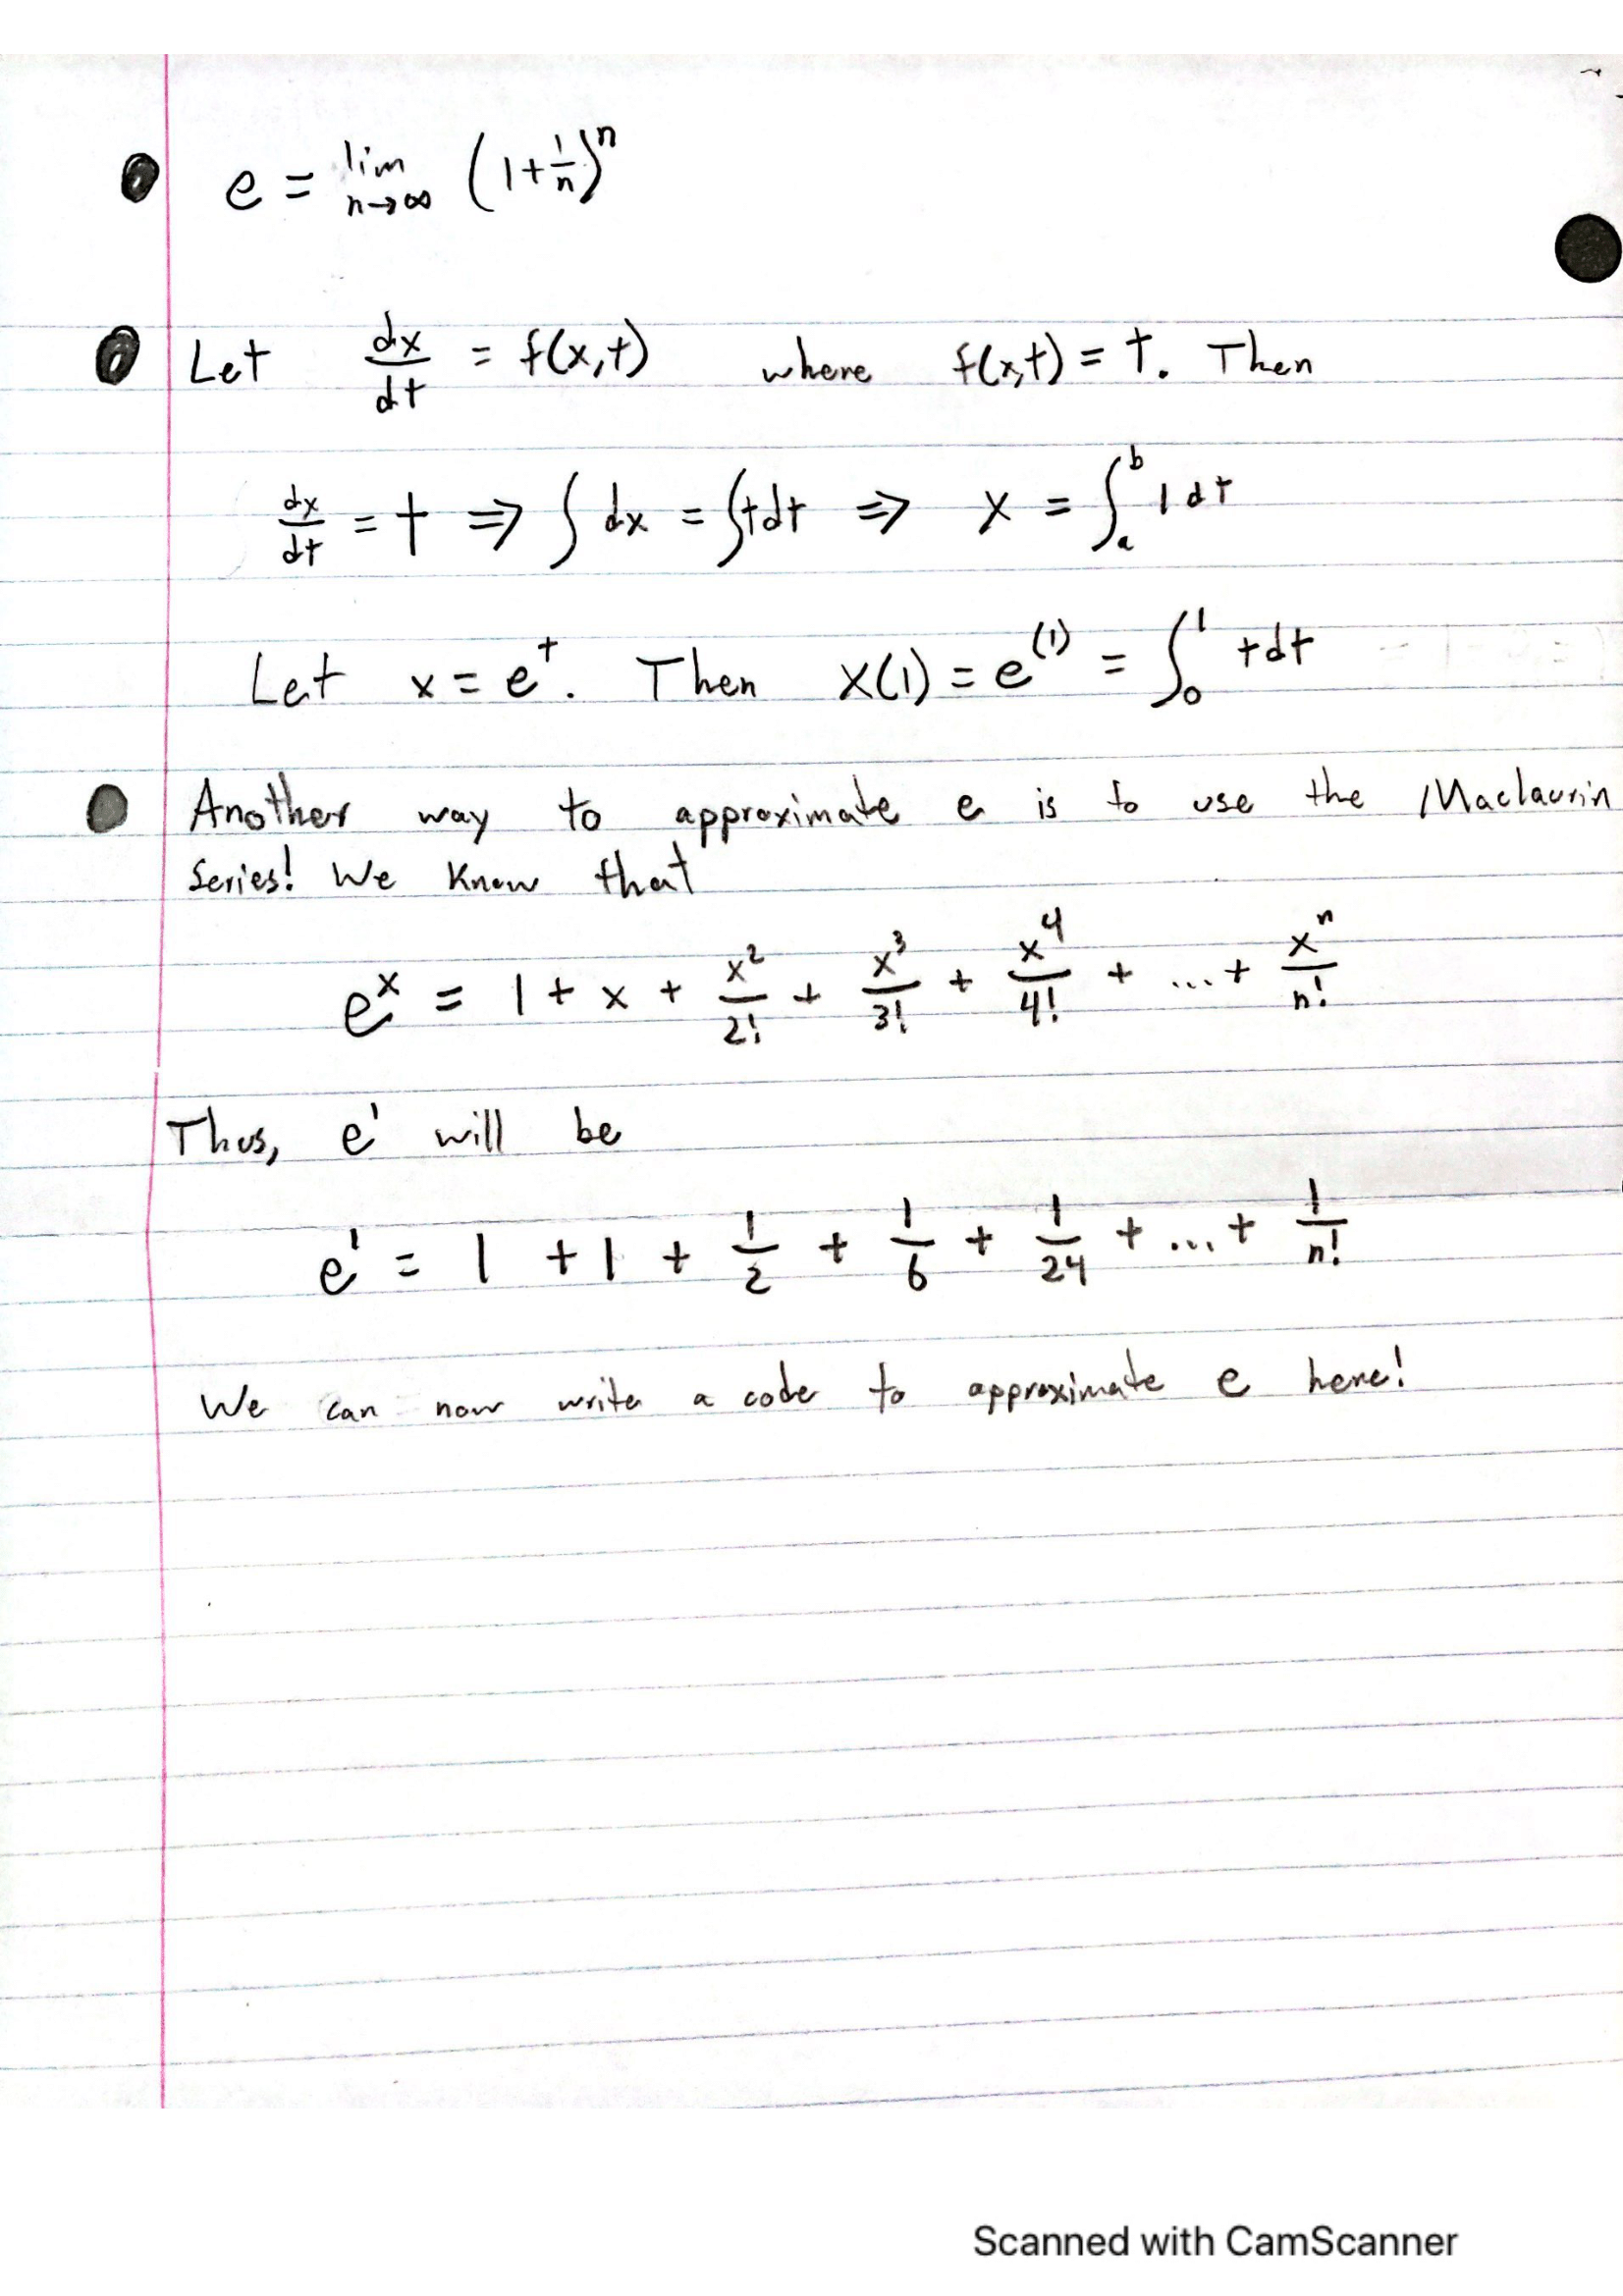 e = lim n→∞ (1+1/n)^n
Let dx/dt = f(x,t) where f(x,t) = t. Then
dx/dt = t ⇒ ∫ dx = ∫tdt ⇒ x = ∫_a^b 1 dt
Let x = e^t. Then x(1) = e^(1) = ∫_0^1 tdt
Another way to approximate e is to use the Maclaurin
Series! We know that
e^x = 1 + x + x^2/2! + x^3/3! + x^4/4! + ... + x^n/n!
Thus, e^1 will be
e^1 = 1 + 1 + 1/2 + 1/6 + 1/24 + ... + 1/n!
We can now write a code to approximate e here!
Scanned with CamScanner